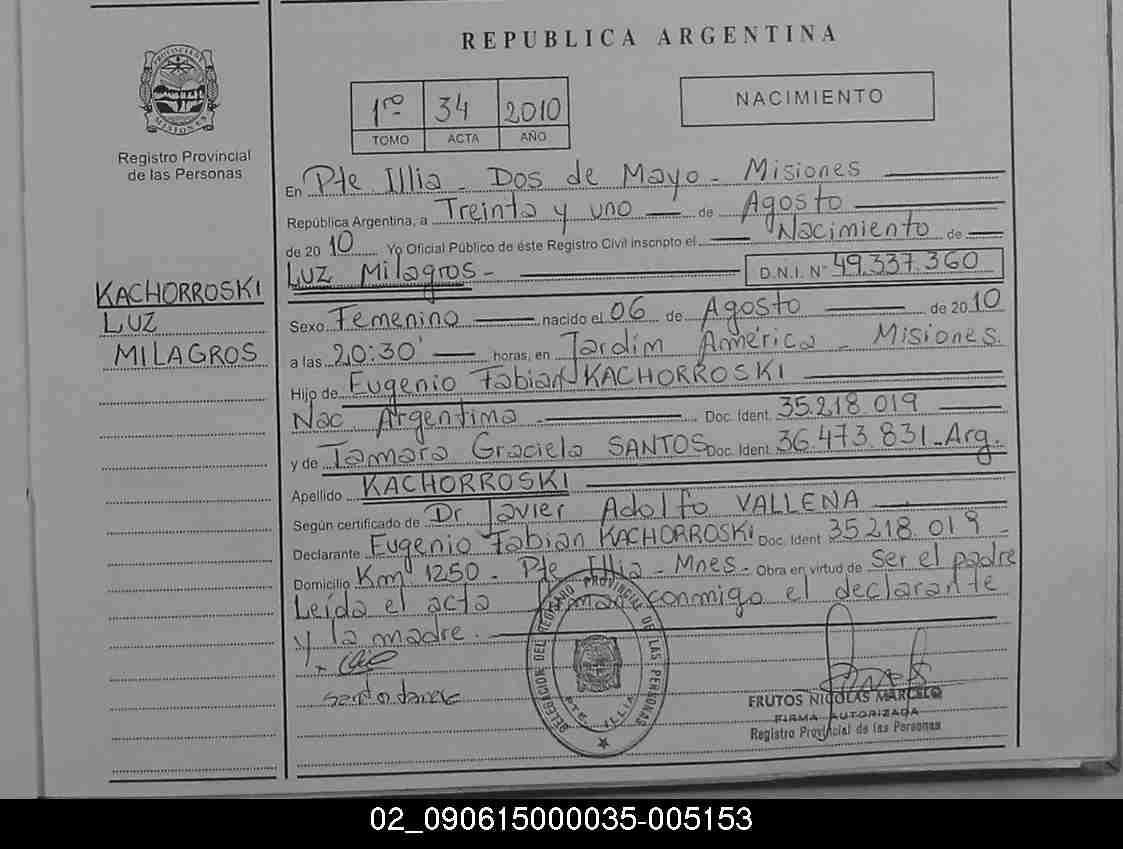 REPUBLICA ARGENTINA
PROVINCIA DE MISIONES
Registro Provincial
de las Personas
1ro 34 2010
TOMO ACTA AÑO
NACIMIENTO
KACHORROSKI
LUZ
MILAGROS
En Pte Illia - Dos de Mayo - Misiones
República Argentina, a Treinta y uno de Agosto
de 2010 Yo Oficial Público de éste Registro Civil inscripto el Nacimiento de
Luz Milagros - D.N.I. N° 49.337.360
Sexo Femenino nacido el 06 de Agosto de 2010
a las 20:30' horas, en Jardim América - Misiones.
Hijo de Eugenio Fabian KACHORROSKI
Nac Argentina Doc. Ident. 35.218.019
y de Tamara Graciela SANTOS Doc. Ident. 36.473.831-Arg.
Apellido KACHORROSKI
Según certificado de Dr Javier Adolfo VALLENA
Declarante Eugenio Fabian KACHORROSKI Doc. Ident 35.218.019 -
Domicilio Km 1250 - Pte Illia - Mnes - Obra en virtud de Ser el padre
Leída el acta firman conmigo el declarante
y la madre.
DELEGACION DEL REGISTRO PROVINCIAL DE LAS PERSONAS
PTE. ILLIA
FRUTOS NICOLAS MARCELO
FIRMA AUTORIZADA
Registro Provincial de las Personas
02_090615000035-005153